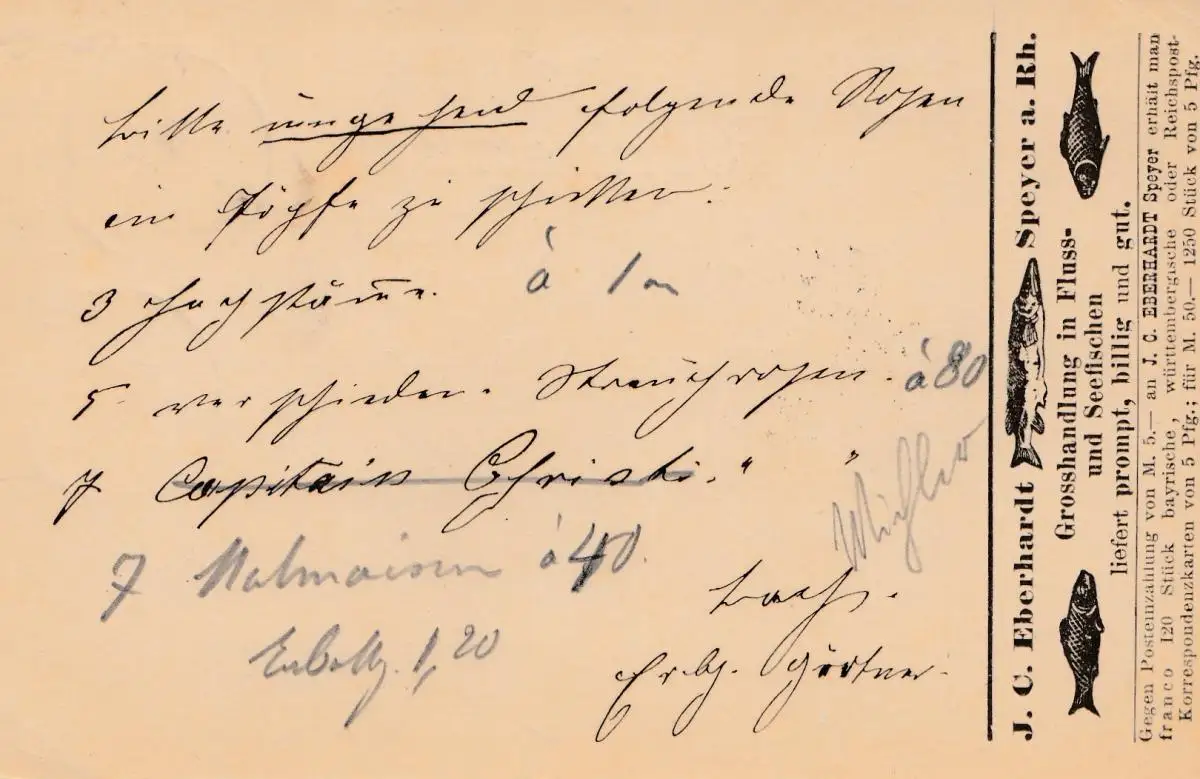 bitte umgehend folgende Rosen
in Töpfe zu schicken.
3 Hochstämme. à 1 m
5 verschieden. Strauchrosen. à 80
7 Capitain Christi. " "
7 Malmaison à 40.
1,20
Gärtner.
J. C. Eberhardt Speyer a. Rh.
Grosshandlung in Fluss-
und Seefischen
liefert prompt, billig und gut.
Gegen Posteinzahlung von M. 5.— an J. C. EBERHARDT Speyer erhält man
franco 120 Stück bayrische, württembergische oder Reichspost-
Korrespondenzkarten von 5 Pfg.; für M. 50.— 1250 Stück von 5 Pfg.